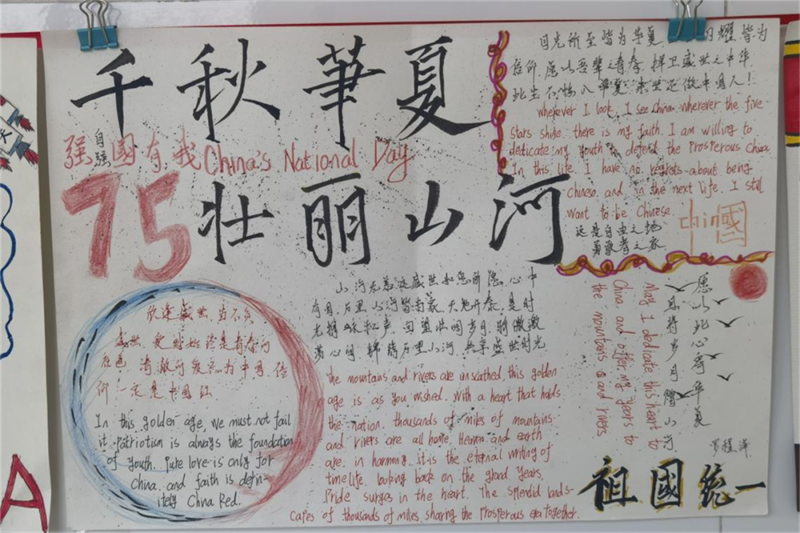 千秋華夏
自强
强國有我 China's National Day
75 壮丽山河
目光所至皆为华夏,
信仰,愿以吾辈之青春,捍卫盛世之中华
此生不悔入华夏,来世还做中国人!
wherever I look, I see China, wherever the five
stars shine, there is my faith. I am willing to
dedicate my youth to defend the Prosperous China
In this life, I have no regrets about being
Chinese, and in the next life, I still
want to be Chinese
这是自由之地
勇敢者之家
chin國
欣逢盛世,当不负
盛世,爱国始终是青春的
底色,清澈的爱只为中国,信
仰一定是中国红
In this golden age, we must not fail
it. Patriotism is always the foundation
of youth. Pure love is only for
China, and faith is defin-
itely China Red.
山河无恙,这盛世如您所愿,心中
有国,万里山河皆为家,天地
微
万里山河,共享盛世时光
The mountains and rivers are unscathed, this golden
age is as you wished. With a heart that holds
the nation, thousands of miles of mountains
and rivers are all home. Heaven and earth
are in harmony, it is the eternal writing of
time life, looking back on the grand years,
Pride surges in the heart. The splendid lands-
capes of thousands of miles, sharing the Prosperous era together.
愿以此心寄华夏
且将岁月赠山河
May I dedicate this heart to
China and offer my years to
the mountains and rivers
祖國统一
A